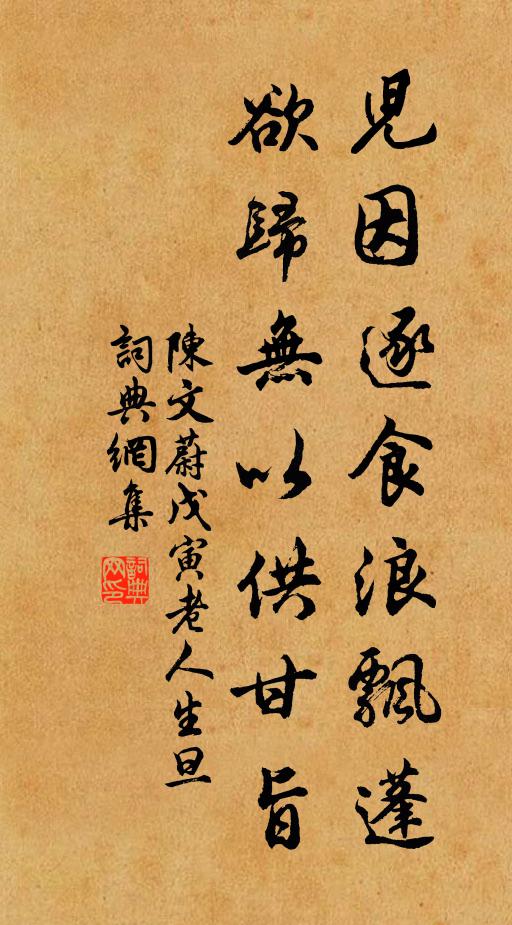 児因逐食浪飄蓬
欲歸無以供甘旨
陳文蔚戊寅老人生旦
詞典網集
詞典網印